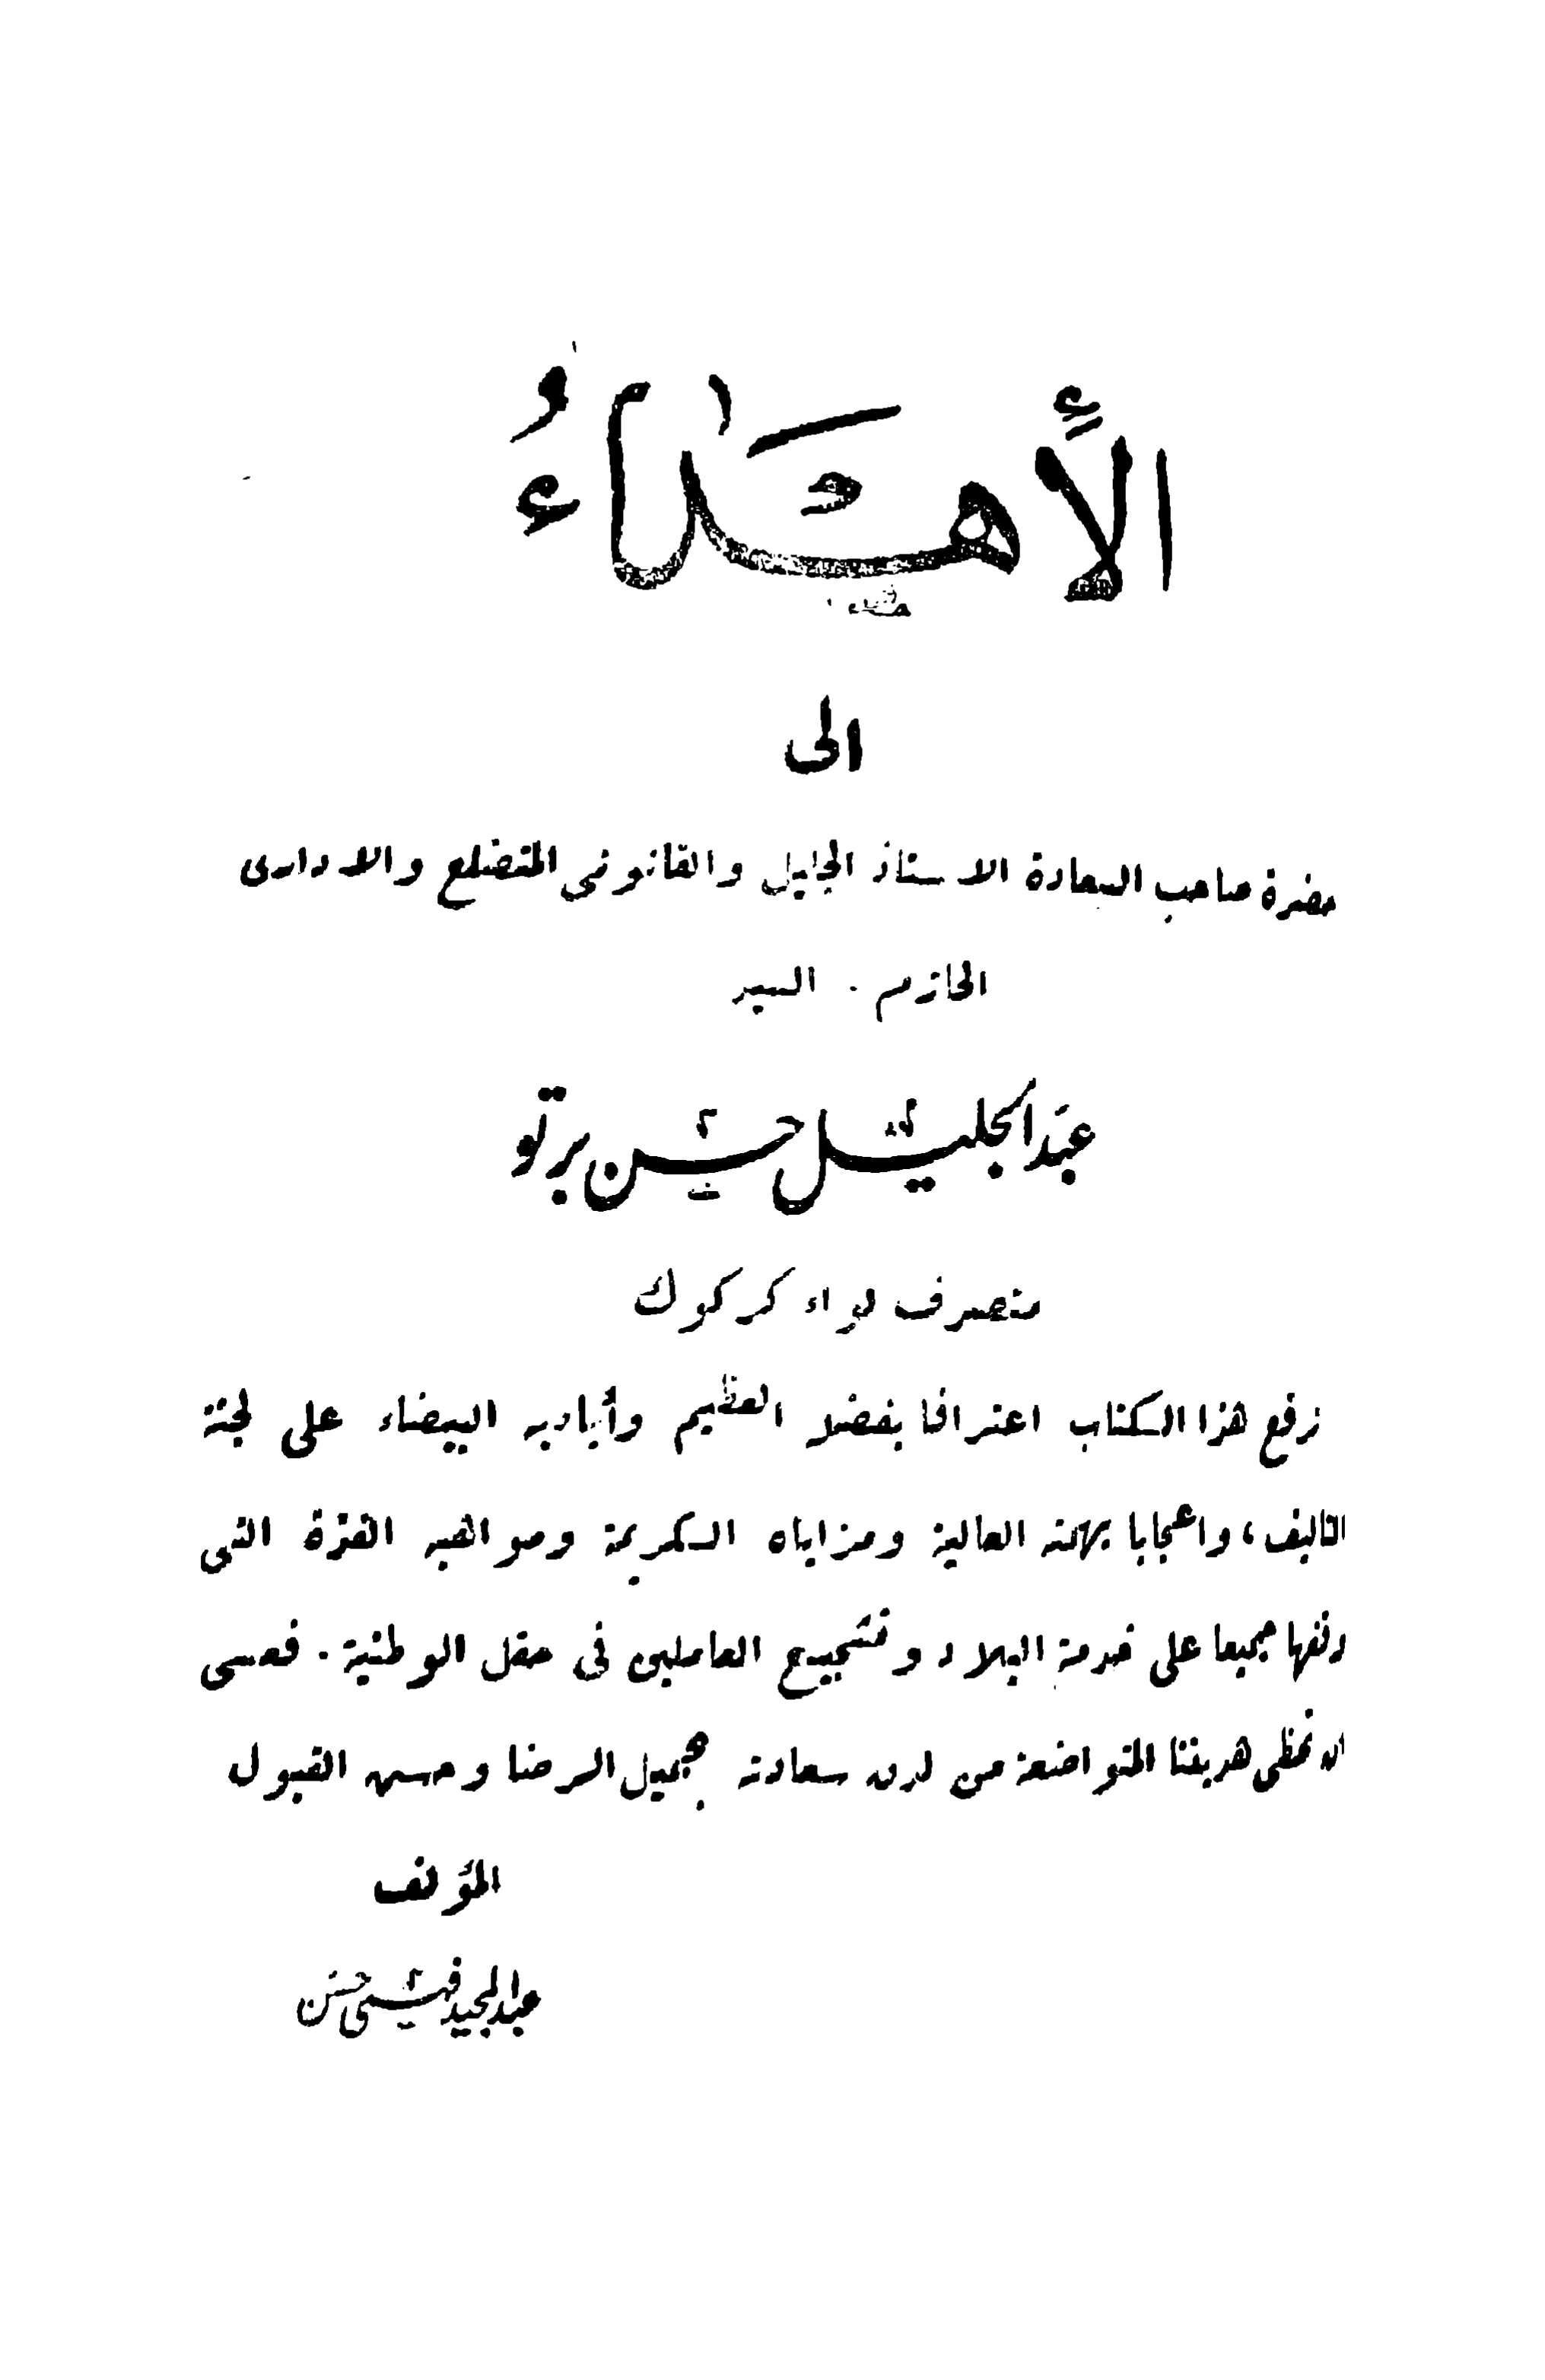 الأهداءُ
الى
حضرة صاحب السعادة الاستاذ الجليل والقانونى المتضلع والادارى
الحازم . السيد
عبد الجليل حسن برتو
متصرف لواء كركوك
نرفع هذا الكتاب اعترافا بفضله العظيم وأياديه البيضاء على لجنة
التاليف، واعجابا بهمته العالية ومزاياه الكريمة ومواهبه الفذة التى
وقفها جميعا على خدمة البلاد وتشجيع العاملين فى حقل الوطنية . فعسى
ان تحظى هديتنا المتواضعة من لدن سعادته بجميل الرضا وحسن القبول
المؤلف
عبد المجيد فهمى حسن